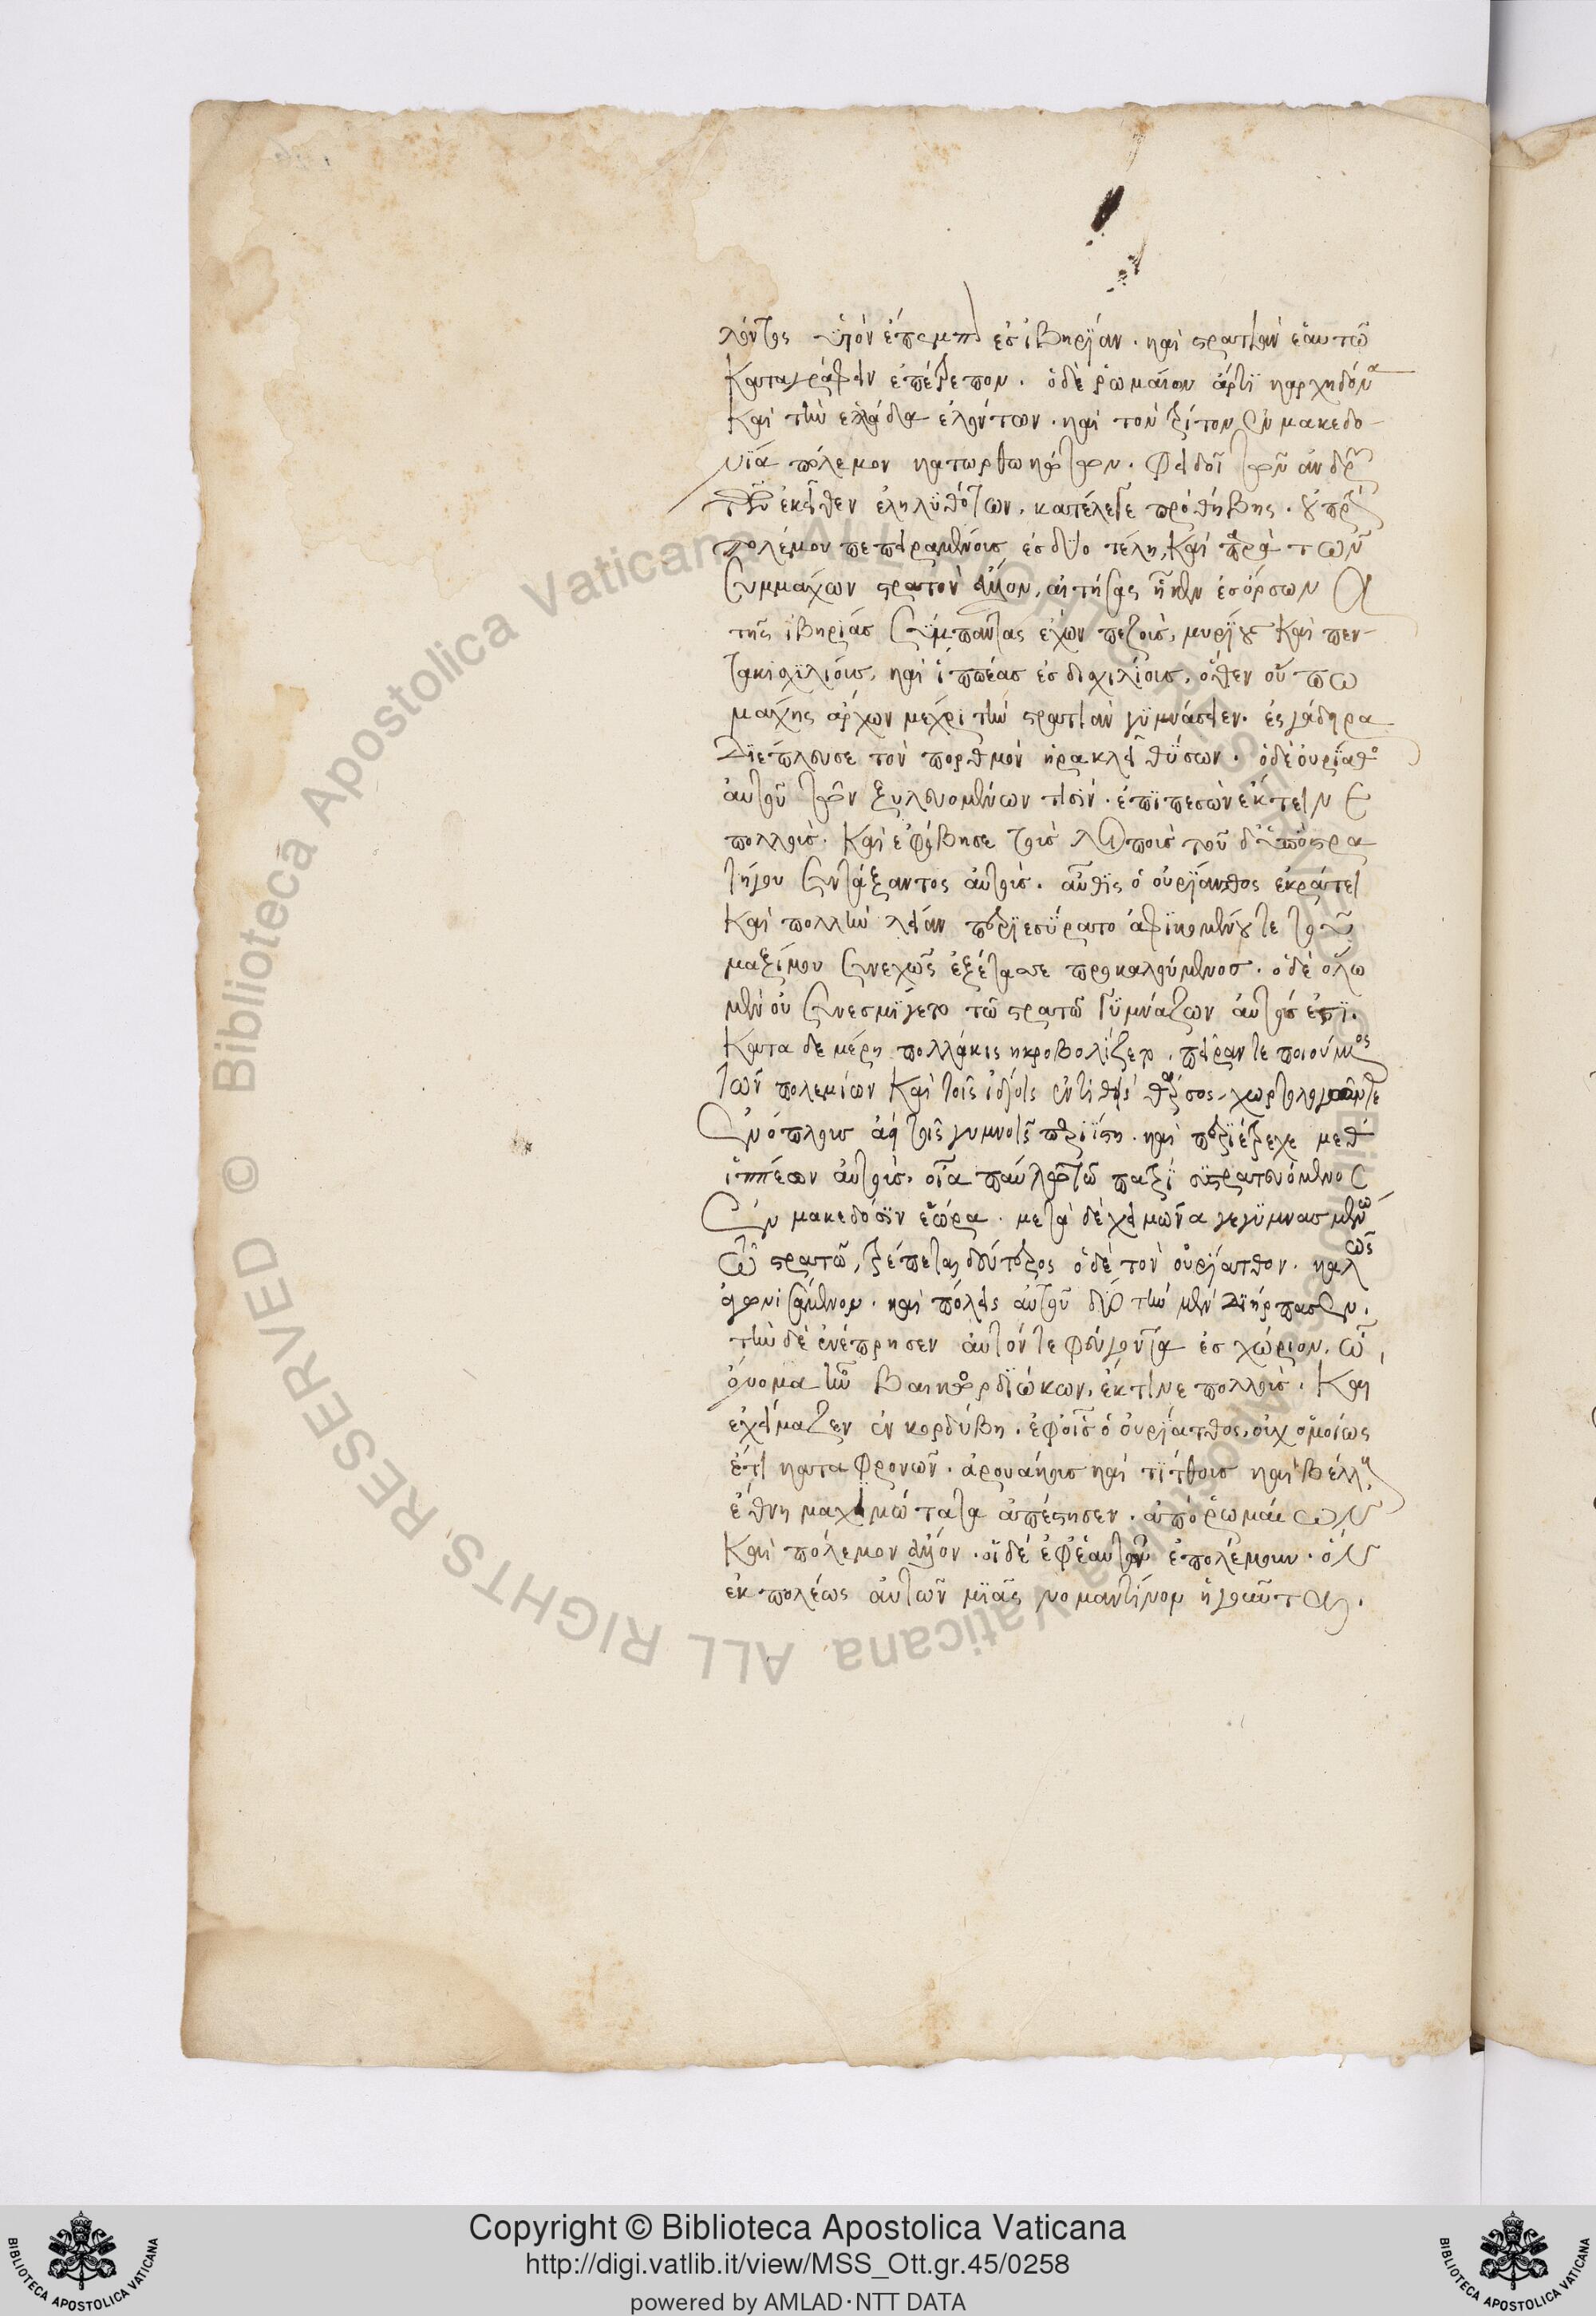 λόντος υἱὸν ἔπεμπ ἐσ ἰβηρίαν. καὶ στρατιὰν ἑαυτῶ
καταγράφειν ἐπέτρεπον. ὁ δὲ ῥωμαίων ἄρτι καρχηδόνα
καὶ τὴν ἑλλάδα ἑλόντων. καὶ τὸν τρίτον ἐν μακεδο-
νία πόλεμον κατωρθωκότων. φειδοῖ τῶν ἀνδρῶν
τῶν ἐκεῖθεν ἐληλυθότων, κατέλεγε πρωθήβης. οὐ πρὶν
πολέμου πεπειραμένοις ἐσ δύο τέλη, καὶ παρὰ τῶν
συμμάχων στρατὸν ἄλλον, αἰτήσας ἧκεν ἐσ ὄρσωνα
τῆς ἰβηρίας σύμπαντας ἔχων πεζοὺς, μυρίους καὶ πεν-
τακισχιλίους, καὶ ἱππέας ἐσ δισχιλίους, ὅθεν οὔπω
μάχης ἄρχων μέχρι τὴν στρατιὰν γυμνάσειεν. ἐς γάδηρα
διέπλευσε τὸν πορθμὸν ἡρακλεῖ θύσων. ὁ δὲ οὐρίαθος
αὐτοῦ τῶν ξυλευομένων τισὶν. ἐπιπεσὼν ἔκτεινε
πολλοὺς. καὶ ἐφόβησε τοὺς λοιποὺς τοῦ δ' ὑποστρα
τήγου συντάξαντος αὐτοὺς. αὖθις ὁ οὐρίατθος ἐκράτει
καὶ πολλὴν λείαν περιεσύρατο ἀφικομένου τε τοῦ
μαξίμου συνεχῶς ἐξέτασσε προκαλούμενοσ. ὁ δὲ ὅλω
μὲν οὐ συνεσμίγετο τῶ στρατῶ γυμνάζων αὐτοὺς ἔτι.
κατα δε μέρη πολλάκις ἠκροβολίζετο, πεῖράν τε ποιούμενος
τῶν πολεμίων καὶ τοῖς ἰδίοις ἐντιθεὶς θάρσος, χορτολογῶν τε
ἐνόπλους ἀεὶ τοῖς γυμνοῖς περιίστη. καὶ περιέτρεχε μεθ'
ἱππέων αὐτοὺς. οἷα παύλω τῶ πατρὶ συστρατευόμενος
ἐν μακεδόσιν ἑώρα. μετὰ δὲ χειμῶνα γεγυμνασμένω
τῶ στρατῶ, τρέπεται δεύτερος ὁ δὲ τὸν οὐρίατθον. καλῶς
ἀγωνισάμενον. καὶ πόλεις αὐτοῦ δύο τὴν μὲν διήρπασεν.
τὴν δὲ ἐνέπρησεν αὐτόν τε φεύγοντα ἐσ χωρίον, ὧ
ὄνομα ἦν βαικὸρ διώκων, ἔκτεινε πολλοὺς. καὶ
ἐχείμαζεν ἐν κορδύβη. ἐφ' οἷς ὁ οὐρίατθος, οὐχ ὁμοίως
ἔτι καταφρονῶν. ἀρουάκους καὶ τίτθους καὶ βελλοὺς
ἔθνη μαχιμώτατα ἀπέστησεν. ἀπὸ ῥωμαίων
καὶ πόλεμον ἄλλον. οἵδε ἐφ' ἑαυτῶν ἐπολέμουν. ὃν
ἐκ πολέως αὐτῶν μιᾶς νομαντίνον ἡγοῦνται.
Copyright © Biblioteca Apostolica Vaticana
http://digi.vatlib.it/view/MSS_Ott.gr.45/0258
powered by AMLAD·NTT DATA